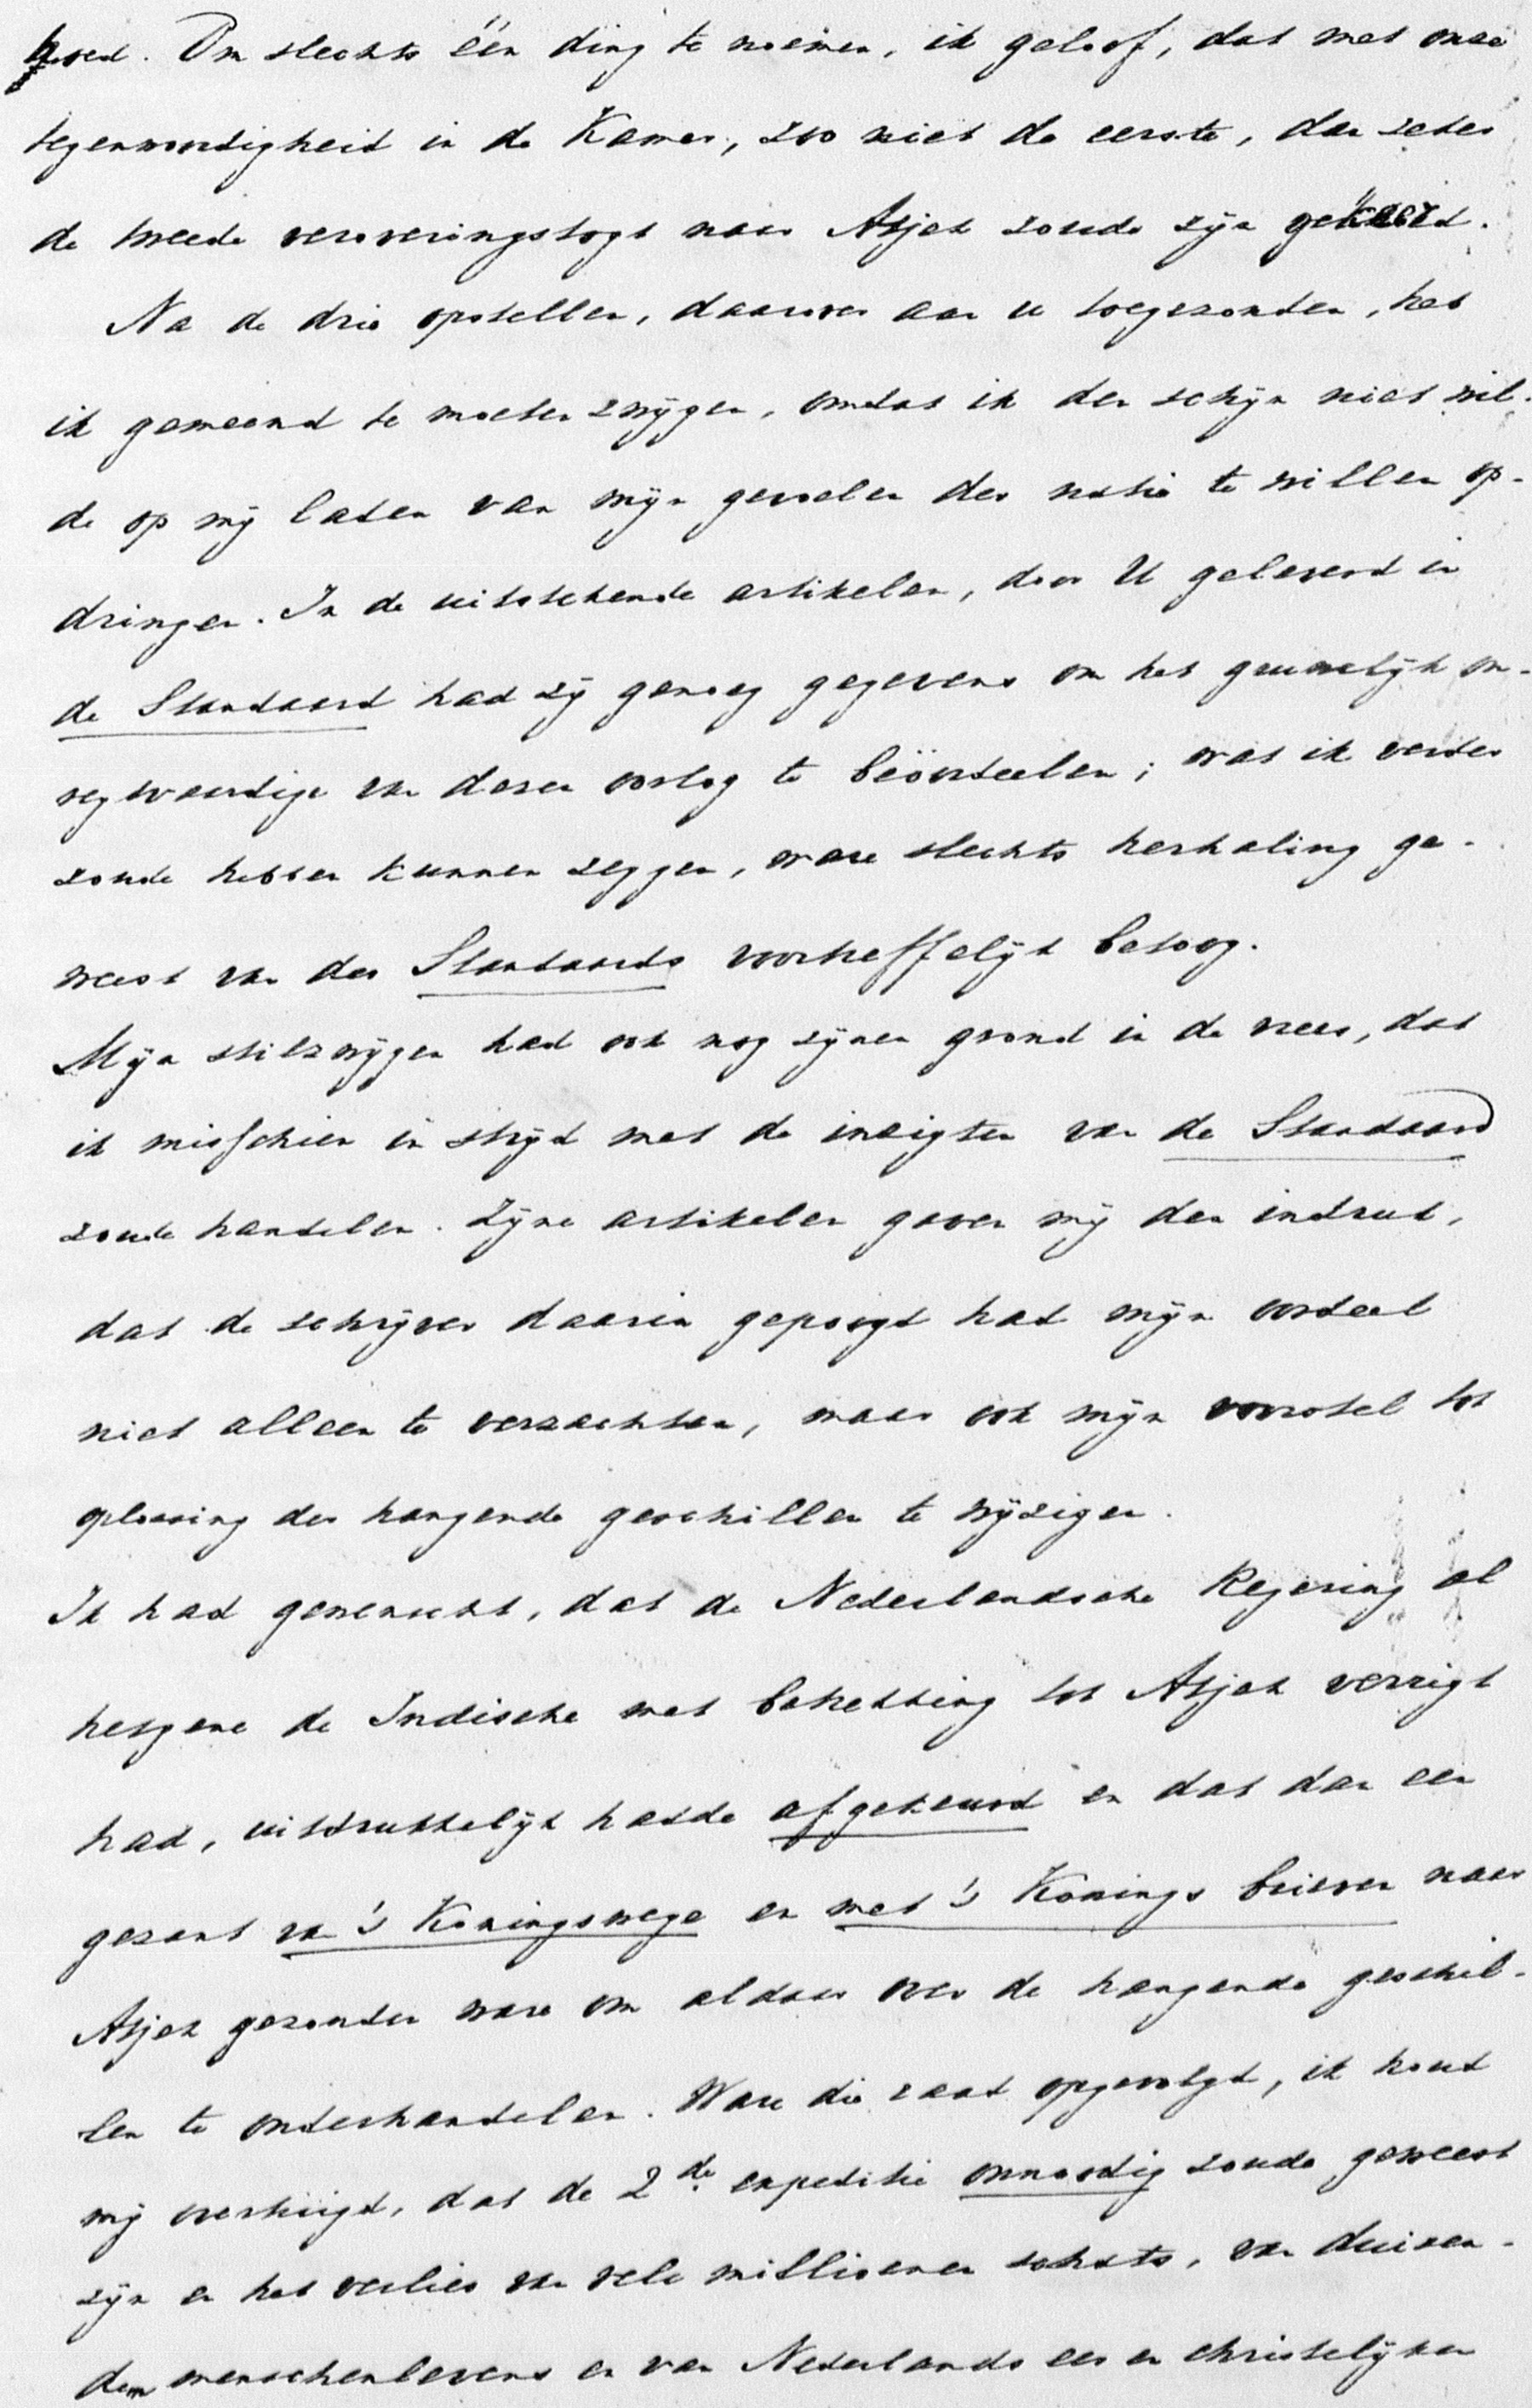 hoed. Om slechts één ding te noemen, ik geloof, dat met onze
tegenwoordigheid in de Kamer, zoo niet de eerste, dan zeker
de tweede veroveringstogt naar Atjeh zoude zijn gekeerd.
Na de drie opstellen, daarover aan u toegezonden, heb
ik gemeend te moeten zwijgen, omdat ik den schijn niet wil-
de op mij laden van mijn gevoelen der natie te willen op-
dringen. In de uitstekende artikelen, door U geleverd in
de Standaard had zij genoeg gegevens om het gruwelijk on-
regtvaardige van dezen oorlog te beöordeelen; wat ik verder
zoude hebben kunnen zeggen, ware slechts herhaling ge-
weest van des Standaards voortreffelijk betoog.
Mijn stilzwijgen had ook nog zijnen grond in de vrees, dat
ik misschien in strijd met de inzigten van de Standaard
zoude handelen. Zijne artikelen gaven mij den indruk,
dat de schrijver daarin gepoogd had mijn oordeel
niet alleen te verzachten, maar ook mijn voorstel tot
oplossing der hangende geschillen te wijzigen.
Ik had gewenscht, dat de Nederlandsche Regering al
hetgene de Indische met betrekking tot Atjeh verrigt
had, uitdrukkelijk hadde afgekeurd en dat dan een
gezant van 's Koningswege en met 's Konings brieven naar
Atjeh gezonden ware om aldaar over de hangende geschil-
len te onderhandelen. Ware die raad opgevolgd, ik houd
mij overtuigd, dat de 2de expeditie onnoodig zoude geweest
zijn en het verlies van vele millioenen schats, van duizen-
den menschenlevens en van Nederlands eer en christelijken